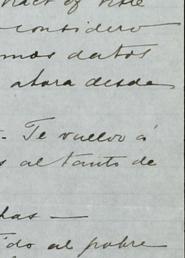 tract of vible
considero
mos datos
ahora desde
- Te vuelvo á
s al tanto de
has —
ido al pobre